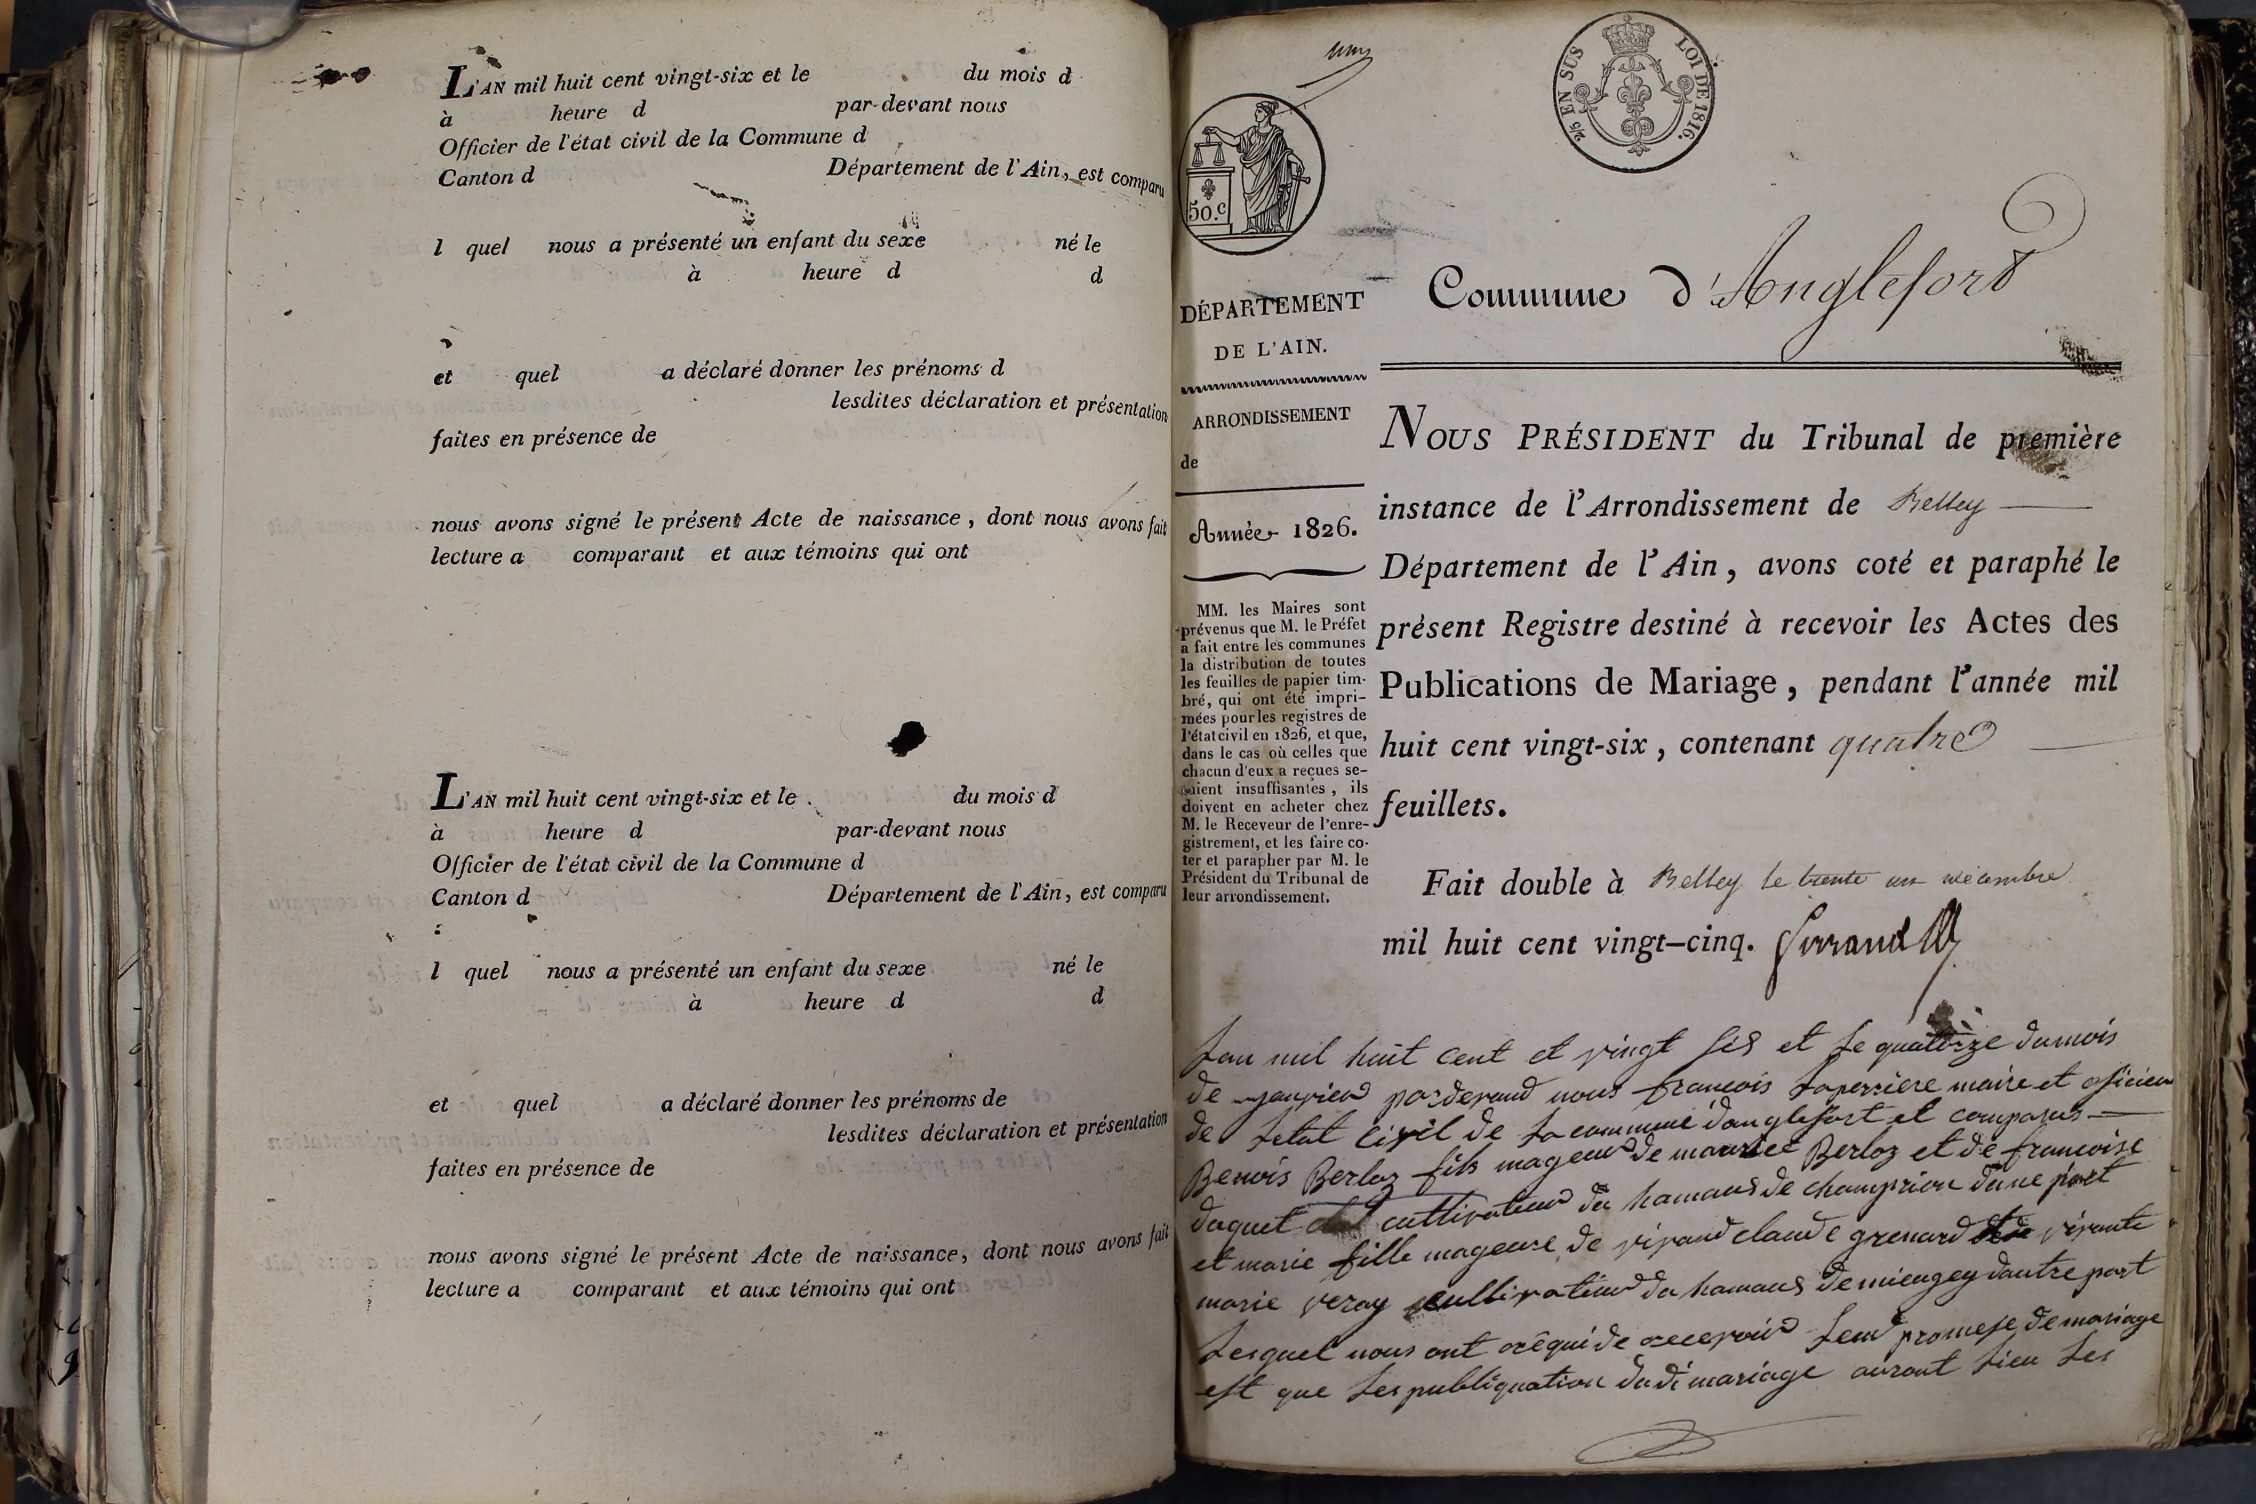 L'AN mil huit cent vingt-six et le du mois d
à heure d par-devant nous
Officier de l'état civil de la Commune d
Canton d Département de l'Ain, est comparu
l quel nous a présenté un enfant du sexe né le
à heure d d
et quel a déclaré donner les prénoms d
lesdites déclaration et présentation
faites en présence de
nous avons signé le présent Acte de naissance, dont nous avons fait
lecture a comparant et aux témoins qui ont
L'AN mil huit cent vingt-six et le du mois d
à heure d par-devant nous
Officier de l'état civil de la Commune d
Canton d Département de l'Ain, est comparu
l quel nous a présenté un enfant du sexe né le
à heure d d
et quel a déclaré donner les prénoms de
lesdites déclaration et présentation
faites en présence de
nous avons signé le présent Acte de naissance, dont nous avons fait
lecture a comparant et aux témoins qui ont
2/5 EN SUS LOI DE 1816.
50.c
DÉPARTEMENT
DE L'AIN.
ARRONDISSEMENT
de
Année 1826.
MM. les Maires sont
prévenus que M. le Préfet
a fait entre les communes
la distribution de toutes
les feuilles de papier tim-
bré, qui ont été impri-
mées pour les registres de
l'état civil en 1826, et que,
dans le cas où celles que
chacun d'eux a reçues se-
raient insuffisantes, ils
doivent en acheter chez
M. le Receveur de l'enre-
gistrement, et les faire co-
ter et parapher par M. le
Président du Tribunal de
leur arrondissement.
Commune d'Anglefort
NOUS PRÉSIDENT du Tribunal de première
instance de l'Arrondissement de Belley
Département de l'Ain, avons coté et paraphé le
présent Registre destiné à recevoir les Actes des
Publications de Mariage, pendant l'année mil
huit cent vingt-six, contenant quatre
feuillets.
Fait double à Belley le trente un décembre
mil huit cent vingt-cinq.
Lan mil huit cent et vingt sis et le quatorze du mois
de janvier par devand nous francois Laperriere maire et oficier
de letat civil de la commune danglefort et comparus
Benois Berloz fils mageur de Berloz et de francoise
daquet cultivateur du hamaus de champrion dune part
et marie fille mageure de vivand claude grenard vivante
marie veray cultivateur du hamaus de miengey dautre part
Lesquel nous ont réquide recevoir leur promese de mariage
est que les publiquation dudi mariage auront lieu les